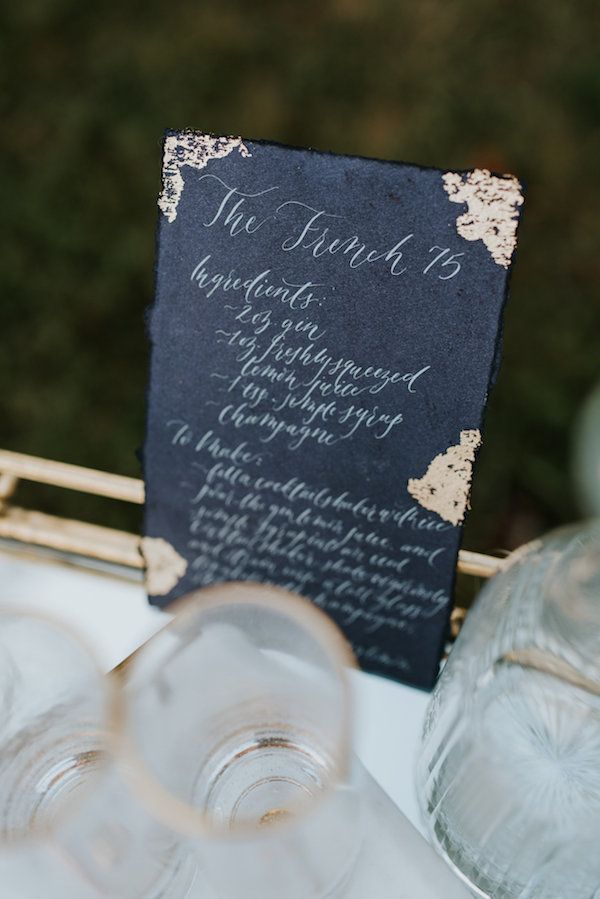 The French 75
Ingredients:
~2oz gin
~1oz freshly squeezed
lemon juice
~1 tsp. simple syrup
Champagne
To Make:
~fill a cocktail shaker w/ ice
pour the gin lemon juice and
simple
cocktail shaker shake vigorously
and
the champagne.